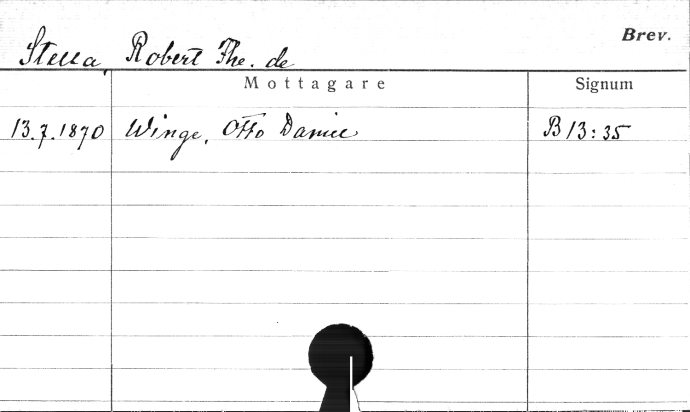 Brev.
Stella, Robert The. de
Mottagare Signum
13.7.1870 Winge, Otto Daniel B 13:35